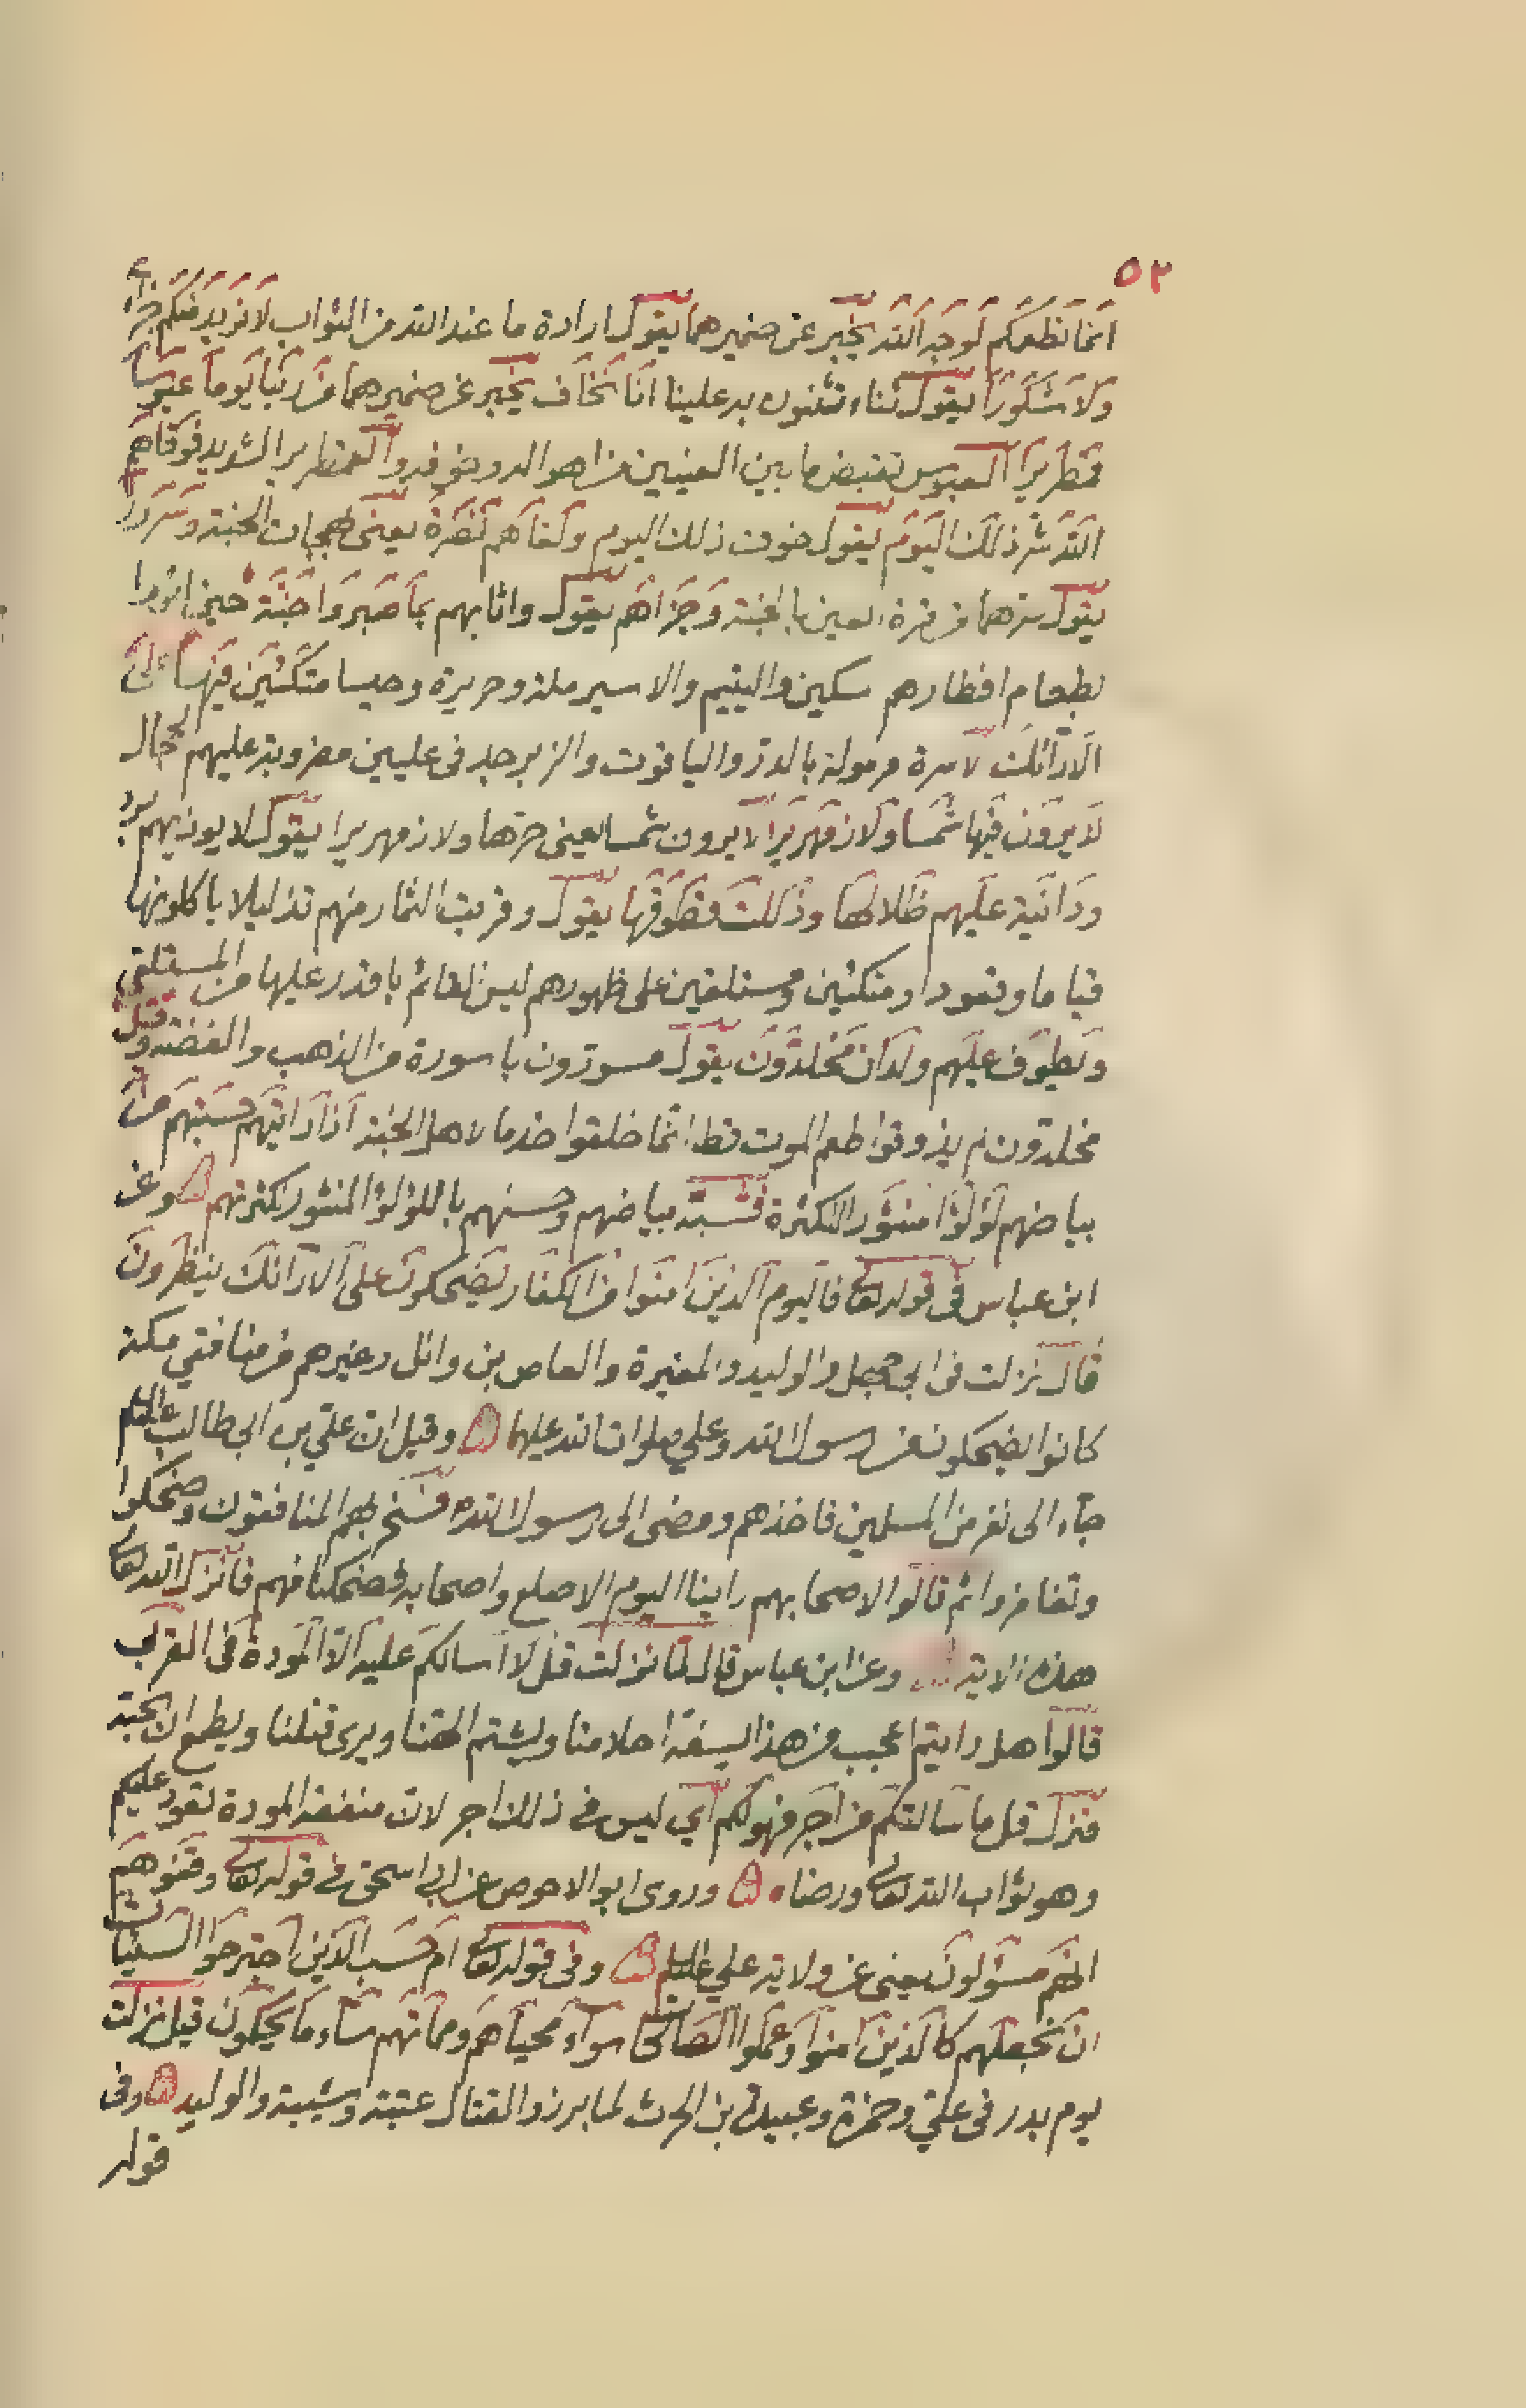 ٥٣
انما نطعمكم لوجه الله يخبر عن ضميرهما يقول ارادة ما عند الله من الثواب لا نريد منكم جزاء
ولا شكورا يقول ثناء تثنون به علينا انا نخاف يخبر عن ضميرهما من ربنا يوما عبوسا
قمطريرا العبوس تقبض ما بين العينين من اهواله وخوفه والقمطرير الشديد فوقاهم
الله شر ذلك اليوم يقول خوف ذلك اليوم ولقاهم نضرة يعنى بهجات الجنة وسرورا
يقول سرهما من قرة العين بالجنة وجزاهم يقول واثابهم بما صبروا جنة حين اثروا
بطعام افطارهم سكين واليتيم والاسير ملة وحريرة وحيسا متكئين فيها على
الارائك لاسرة مرمولة بالدر والياقوت والزبرجد فى عليين مضروبة عليهم الحجال
لا يرون فيها شمسا ولا زمهريرا لا يرون شمسا يعنى حرها ولا زمهريرا يقول لا يوذيهم برد
ودانية عليهم ظلالها وذللت قطوفها يقول وقربت الثمار منهم تذليلا ياكلونها
قياما وقعودا ومتكئين ومستلقين على ظهورهم ليس القائم باقدر عليها من المستلقى
ويطوف عليهم ولدان مخلدون يقول مسورون باسورة من الذهب والفضة وقيل
مخلدون لم يذوقوا طعم الموت قط انما خلقوا خدما لاهل الجنة اذا رايتهم حسبتهم من
بياضهم لؤلؤا منثورا لكثرة فشبه بياضهم وحسنهم باللؤلؤ المنثور لكثرتهم وعن
ابن عباس فى قوله تعالى فاليوم الذين امنوا من الكفار يضحكون على الارائك ينظرون
قال نزلت فى ابى جهل والوليد والمغيرة والعاص بن وائل وغيرهم من منافقي مكة
كانوا يضحكون من رسول الله وعلي صلوات الله عليهما وقيل ان علي بن ابى طالب عليه السلم
جاء الى نفر من المسلمين فاخذهم ومضى الى رسول الله فسخر بهم المنافقون وضحكوا
وتغامزوا ثم قالوا لاصحابهم راينا اليوم الاصلع واصحابه فضحكنا منهم فانزل الله تعالى
هذه الاية وعن ابن عباس قال لما نزلت قل لا اسالكم عليه الا المودة فى القربى
قالوا هل رايتم اعجب من هذا يسفه احلامنا ويشتم الهتنا ويرى قتلنا ويطمع ان نحبه
فنزل قل ما سالتكم من اجر فهو لكم اي ليس فى ذلك اجر لان منفعة المودة تعود عليكم
وهو ثواب الله تعالى ورضاه وروى ابو الاحوص عن ابى اسحق فى قوله تعالى وقفوهم
انهم مسؤلون يعنى عن ولاية علي عليه السلم وفى قوله تعالى ام حسب الذين اجترحوا السيئات
ان نجعلهم كالذين امنوا وعملوا الصالحات سواء محياهم ومماتهم ساء ما يحكمون قيل نزلت
يوم بدر فى علي وحمزة وعبيدة بن الحرث لما برزوا لقتال عتبة وشيبة والوليد وفى
قوله